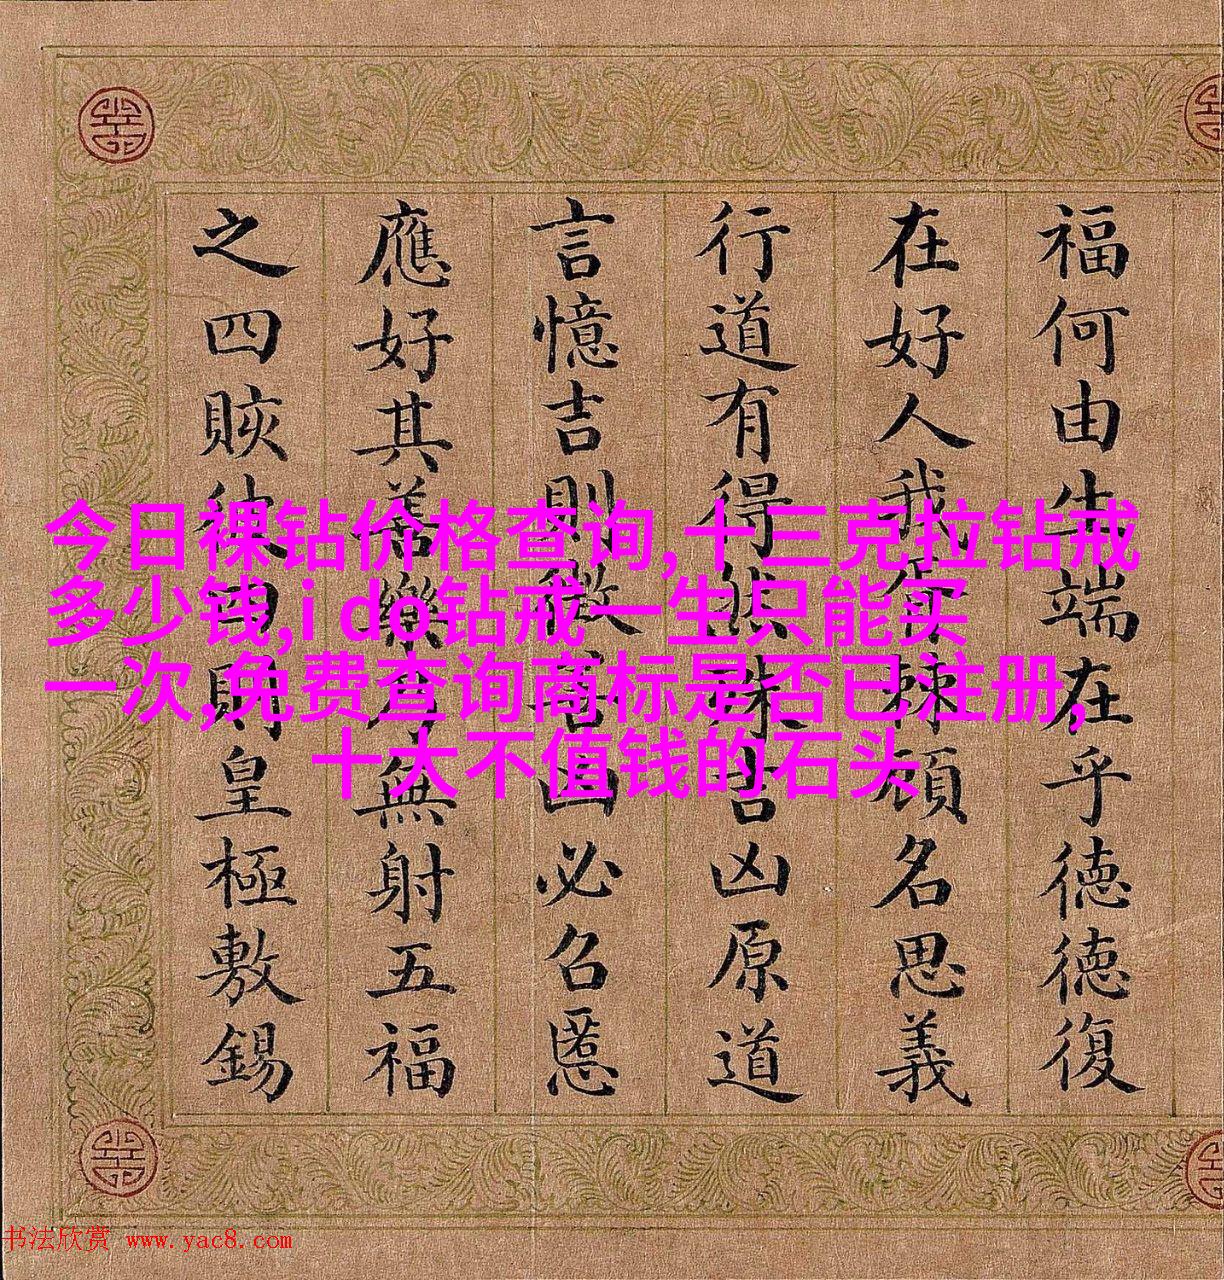 福何由生端在乎徳徳復
在好人我有顧名思義
行道有得殊吉凶原道
言憶吉則凶必召慝
應好其善樂無射五福
之四賅則皇極敷錫
今日裸钻价格查询,十三克拉钻戒
多少钱,i do钻戒一生只能买
一次,免费查询商标是否已注册,
十大不值钱的石头
书法欣赏 www.yac8.com